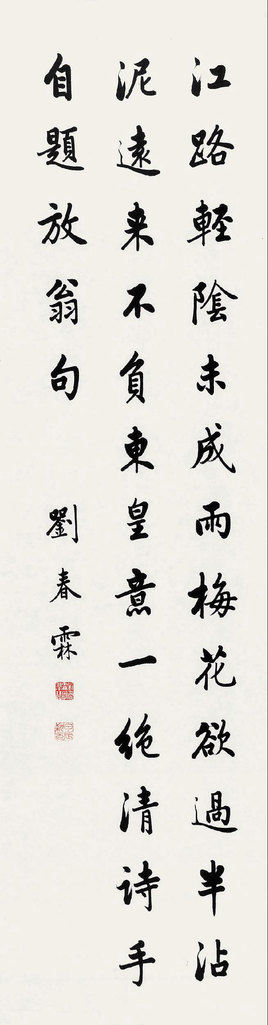 江路輕陰未成雨梅花欲過半沾
泥遠来不負東皇意一絶清诗手
自題放翁句
劉春霖